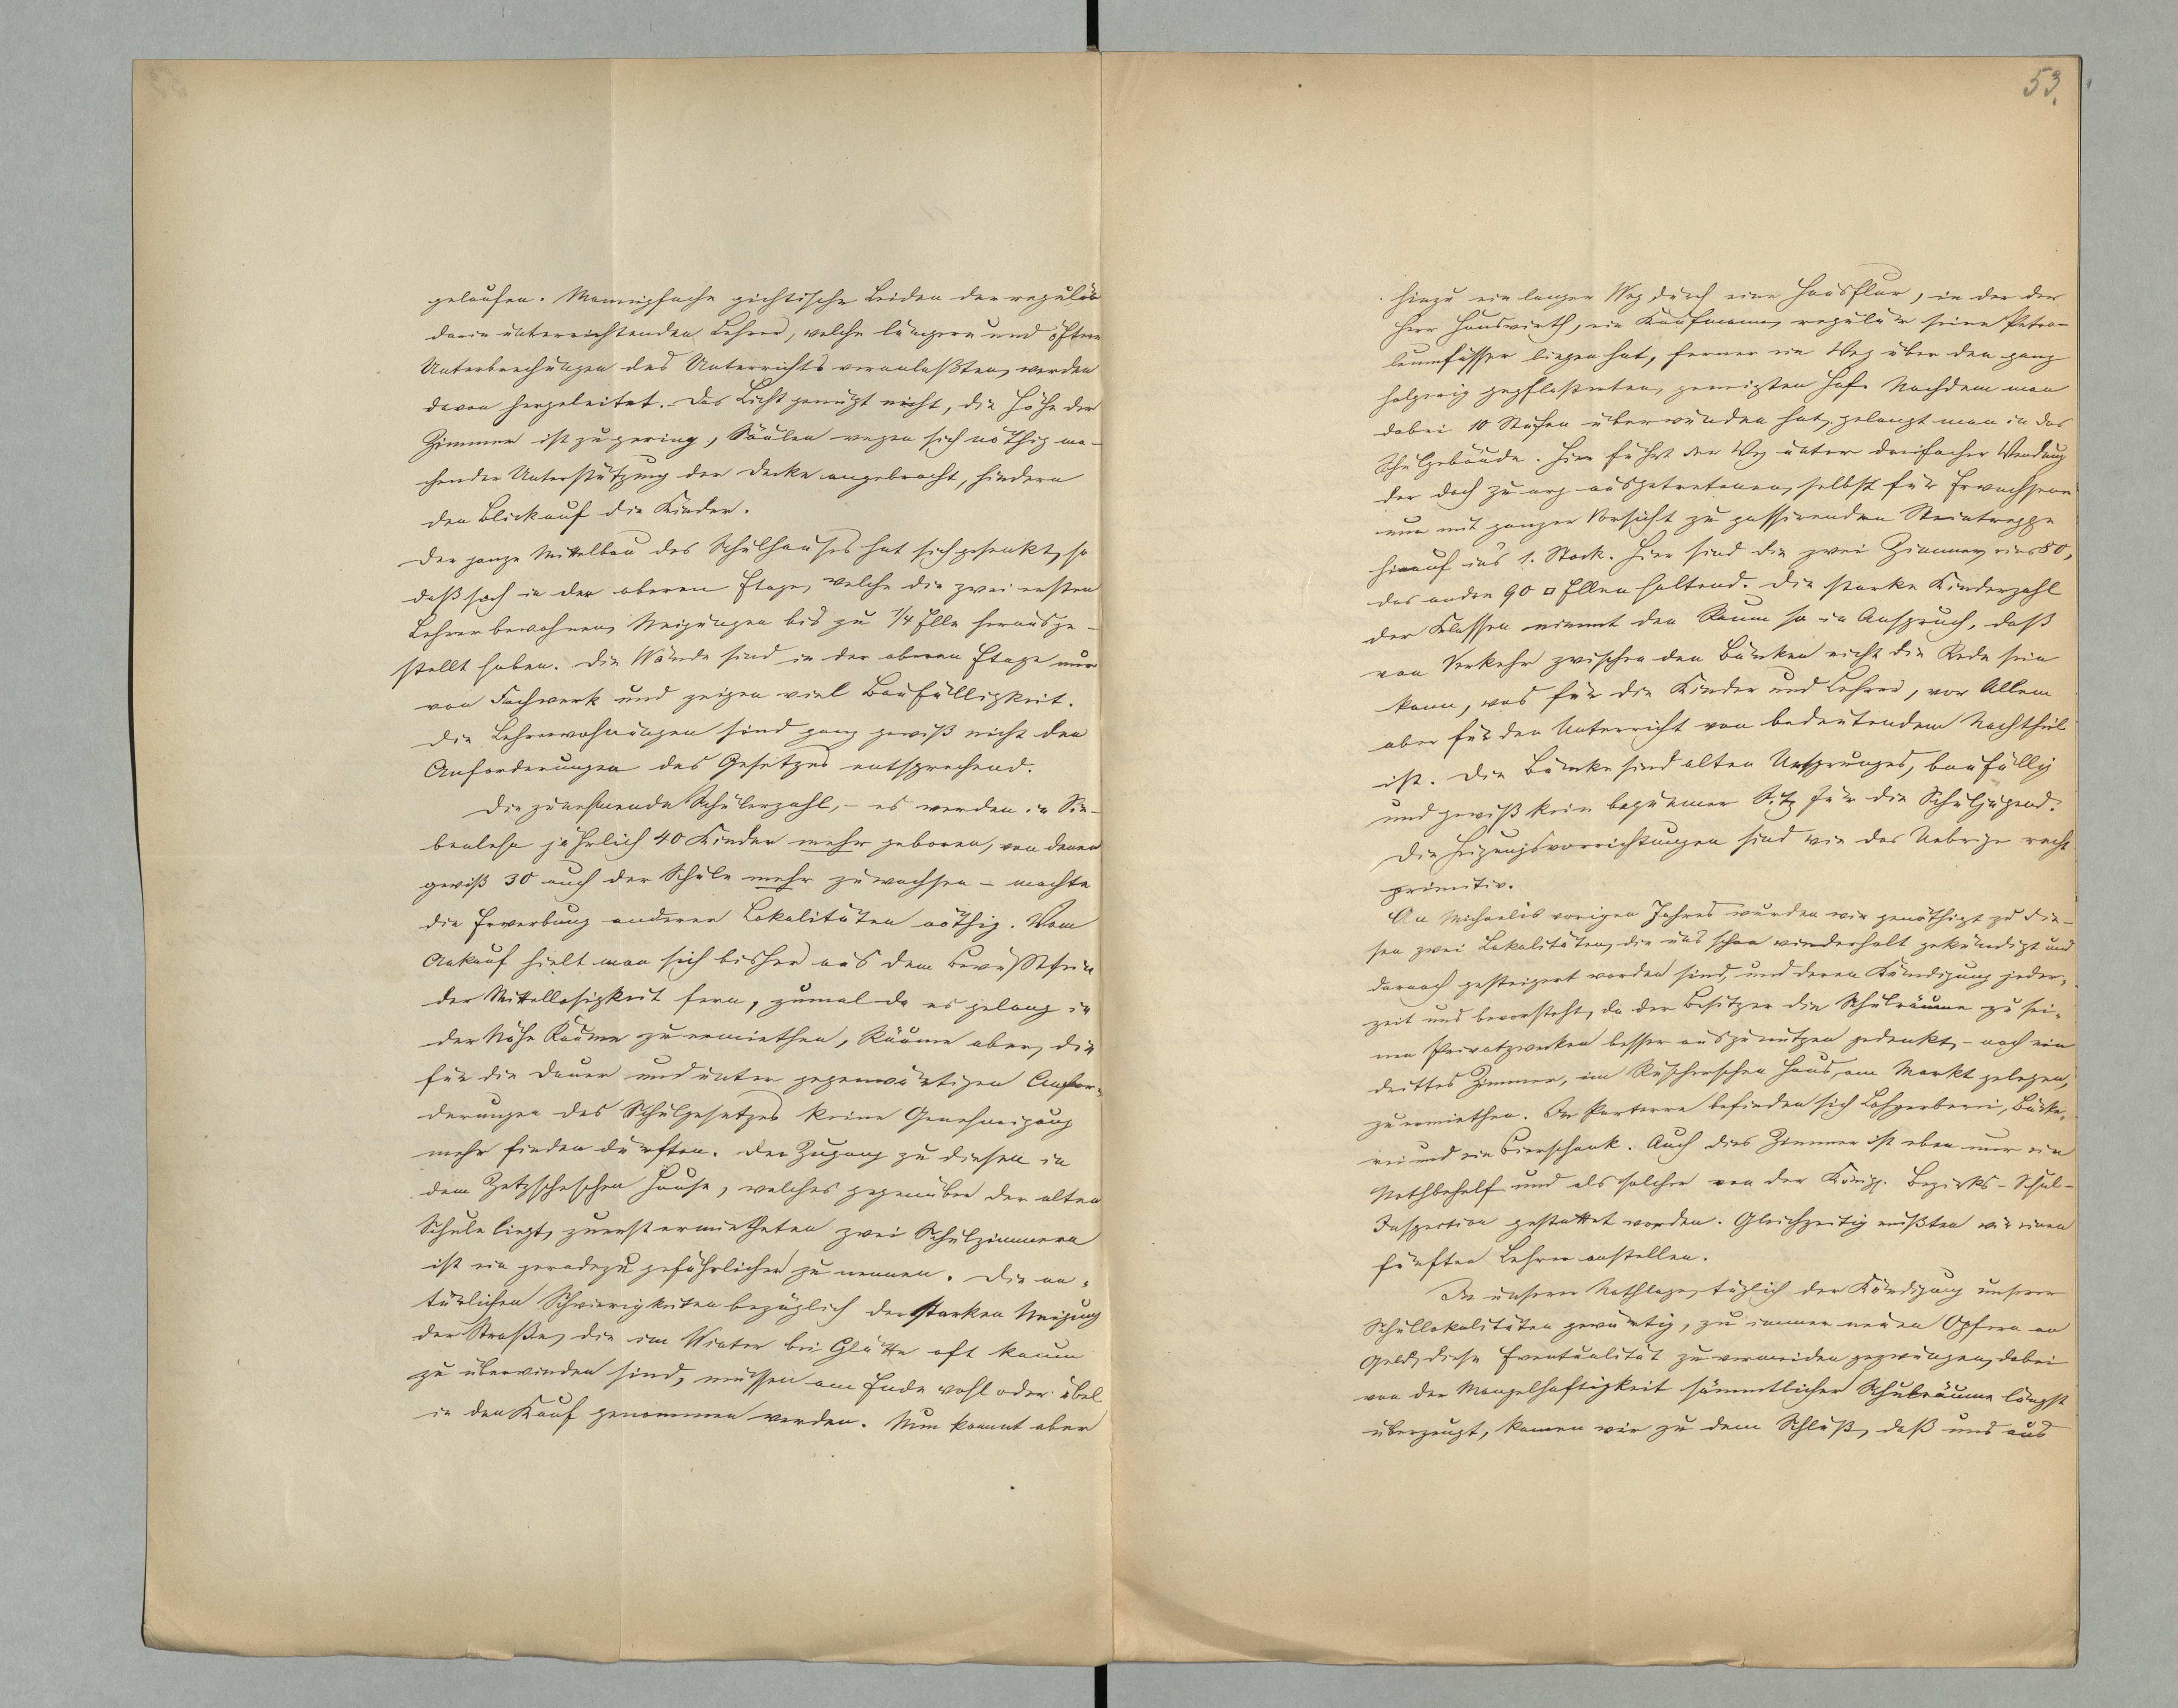 gelaufen. Mannigfache gichtische Leiden der regulär
darin unterrichtenden Lehrer, welche längere und öftere
Unterbrechungen des Unterrichts veranlaßten, werden
davon hergeleitet. Das Licht genügt nicht, die Höhe der
Zimmer ist zu gering, Säulen wegen sich nöthig ma-
chender Unterstützung der Decke angebracht, hindern
den Blick auf die Kinder.
Der ganze Mittelbau des Schulhauses hat sich gesenkt, so
daß sich in der oberen Etage, welche die zwei ersten
Lehrer bewohnen, Neigungen bis zu 1/4 Elle herausge-
stellt haben. Die Wände sind in der oberen Etage nur
von Fachwerk und zeigen viel Baufälligkeit.
Die Lehrerwohnungen sind ganz gewiß nicht den
Anforderungen des Gesetzes entsprechend.
Die zunehmende Schülerzahl, – es werden in Sie-
benlehn jährlich 40 Kinder mehr geboren, von denen
gewiß 30 auch der Schule mehr zuwachsen – machte
die Erwerbung anderer Lokalitäten nöthig. Vom
Ankauf hielt man sich bisher aus dem Bewußtsein
der Mittellosigkeit fern, zumal da es gelang in
der Nähe Räume zu ermiethen, Räume aber, die
für die Dauer und unter gegenwärtigen Anfor-
derungen des Schulgesetzes keine Genehmigung
mehr finden dürften. Der Zugang zu diesen in
dem Zetzscheschen Hause, welches gegenüber der alten
Schule liegt, zuerst ermietheten zwei Schulzimmern
ist ein geradezu gefährlicher zu nennen. Die na-
türlichen Schwierigkeiten bezüglich der starken Neigung
der Straße, die im Winter bei Glätte oft kaum
zu überwinden sind, müssen am Ende wohl oder übel
in den Kauf genommen werden. Nun kommt aber
53.
hinzu ein langer Weg durch eine Hausflur, in der der
Herr Hauswirth, ein Kaufmann, regulär seine Petro-
leumfässer liegen hat, ferner ein Weg über den ganz
holperig gepflasterten, geneigten Hof. Nachdem man
dabei 10 Stufen überwunden hat, gelangt man in das
Schulgebäude. Hier führt der Weg unter dreifacher Wendung
der doch zu arg ausgetretenen, selbst für Erwachsene
nur mit ganzer Vorsicht zu passirenden Steintreppe
hinauf ins 1. Stock. Hier sind die zwei Zimmer, eines 80,
das andre 90 □ Ellen haltend. Die starke Kinderzahl
der Klassen nimmt den Raum so in Anspruch, daß
von Verkehr zwischen den Bänken nicht die Rede sein
kann, was für die Kinder und Lehrer, vor Allem
aber für den Unterricht von bedeutendem Nachtheil
ist. Die Bänke sind alten Ursprunges, baufällig
und gewiß kein bequemer Sitz für die Schuljugend.
Die Heizungsvorrichtungen sind wie das Uebrige recht
primitiv.
An Michaelis vorigen Jahres wurden wir genöthigt zu die-
sen zwei Lokalitäten, die uns schon wiederholt gekündigt und
darnach gesteigert worden sind, und deren Kündigung jeder-
zeit uns bevorsteht, da der Besitzer die Schulräume zu sei-
nen Privatzwecken besser auszunutzen gedenkt, – noch ein
drittes Zimmer, im Ruscherschen Haus, am Markt gelegen,
zu ermiethen. Im Parterre befinden sich Lohgerberei, Bäcke-
rei und ein Bierschank. Auch dies Zimmer ist eben nur ein
Nothbehelf und als solcher von der Königl. Bezirks-Schul-
Inspection gestattet worden. Gleichzeitig mußten wir einen
fünften Lehrer anstellen.
In unserer Nothlage, täglich der Kündigung unserer
Schullokalitäten gewärtig, zu immer neuen Opfern an
Geld, diese Eventualität zu vermeiden gezwungen, dabei
von der Mangelhaftigkeit sämmtlicher Schulräume längst
überzeugt, kamen wir zu dem Schluß, daß uns aus